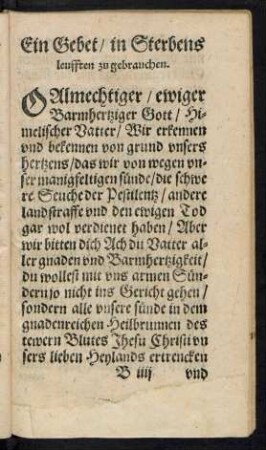 Ein Gebet / in Sterbens
leufften zu gebrauchen.
O Almechtiger / ewiger
Barmhertziger Gott / Hi-
melischer Vatter / Wir erkennen
vnd bekennen von grund vnsers
hertzens / das wir von wegen vn-
ser manigfeltigen sünde / die schwe
re Seuche der Pestilentz / andere
landstraffe vnd den ewigen Tod
gar wol verdienet haben / Aber
wir bitten dich Ach du Vatter al-
ler gnaden vnd Barmhertzigkeit /
du wollest mit vns armen Sün-
dern jo nicht ins Gericht gehen /
sondern alle vnsere sünde in dem
gnadenreichen Heilbrunnen des
tewern Blutes Jhesu Christi vn
sers lieben Heylands ertrencken
B iiij vnd